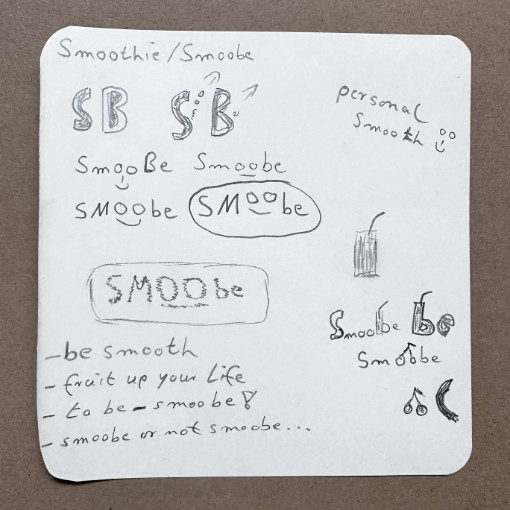 Smoothie/Smoobe
SB SB
personal
smooth
SmooBe Smoobe
SMOObe SMOObe
SMOObe
Smoobe be
Smoobe
-be smooth
- fruit up your Life
- to be-smoobe!
- smoobe or not smoobe...